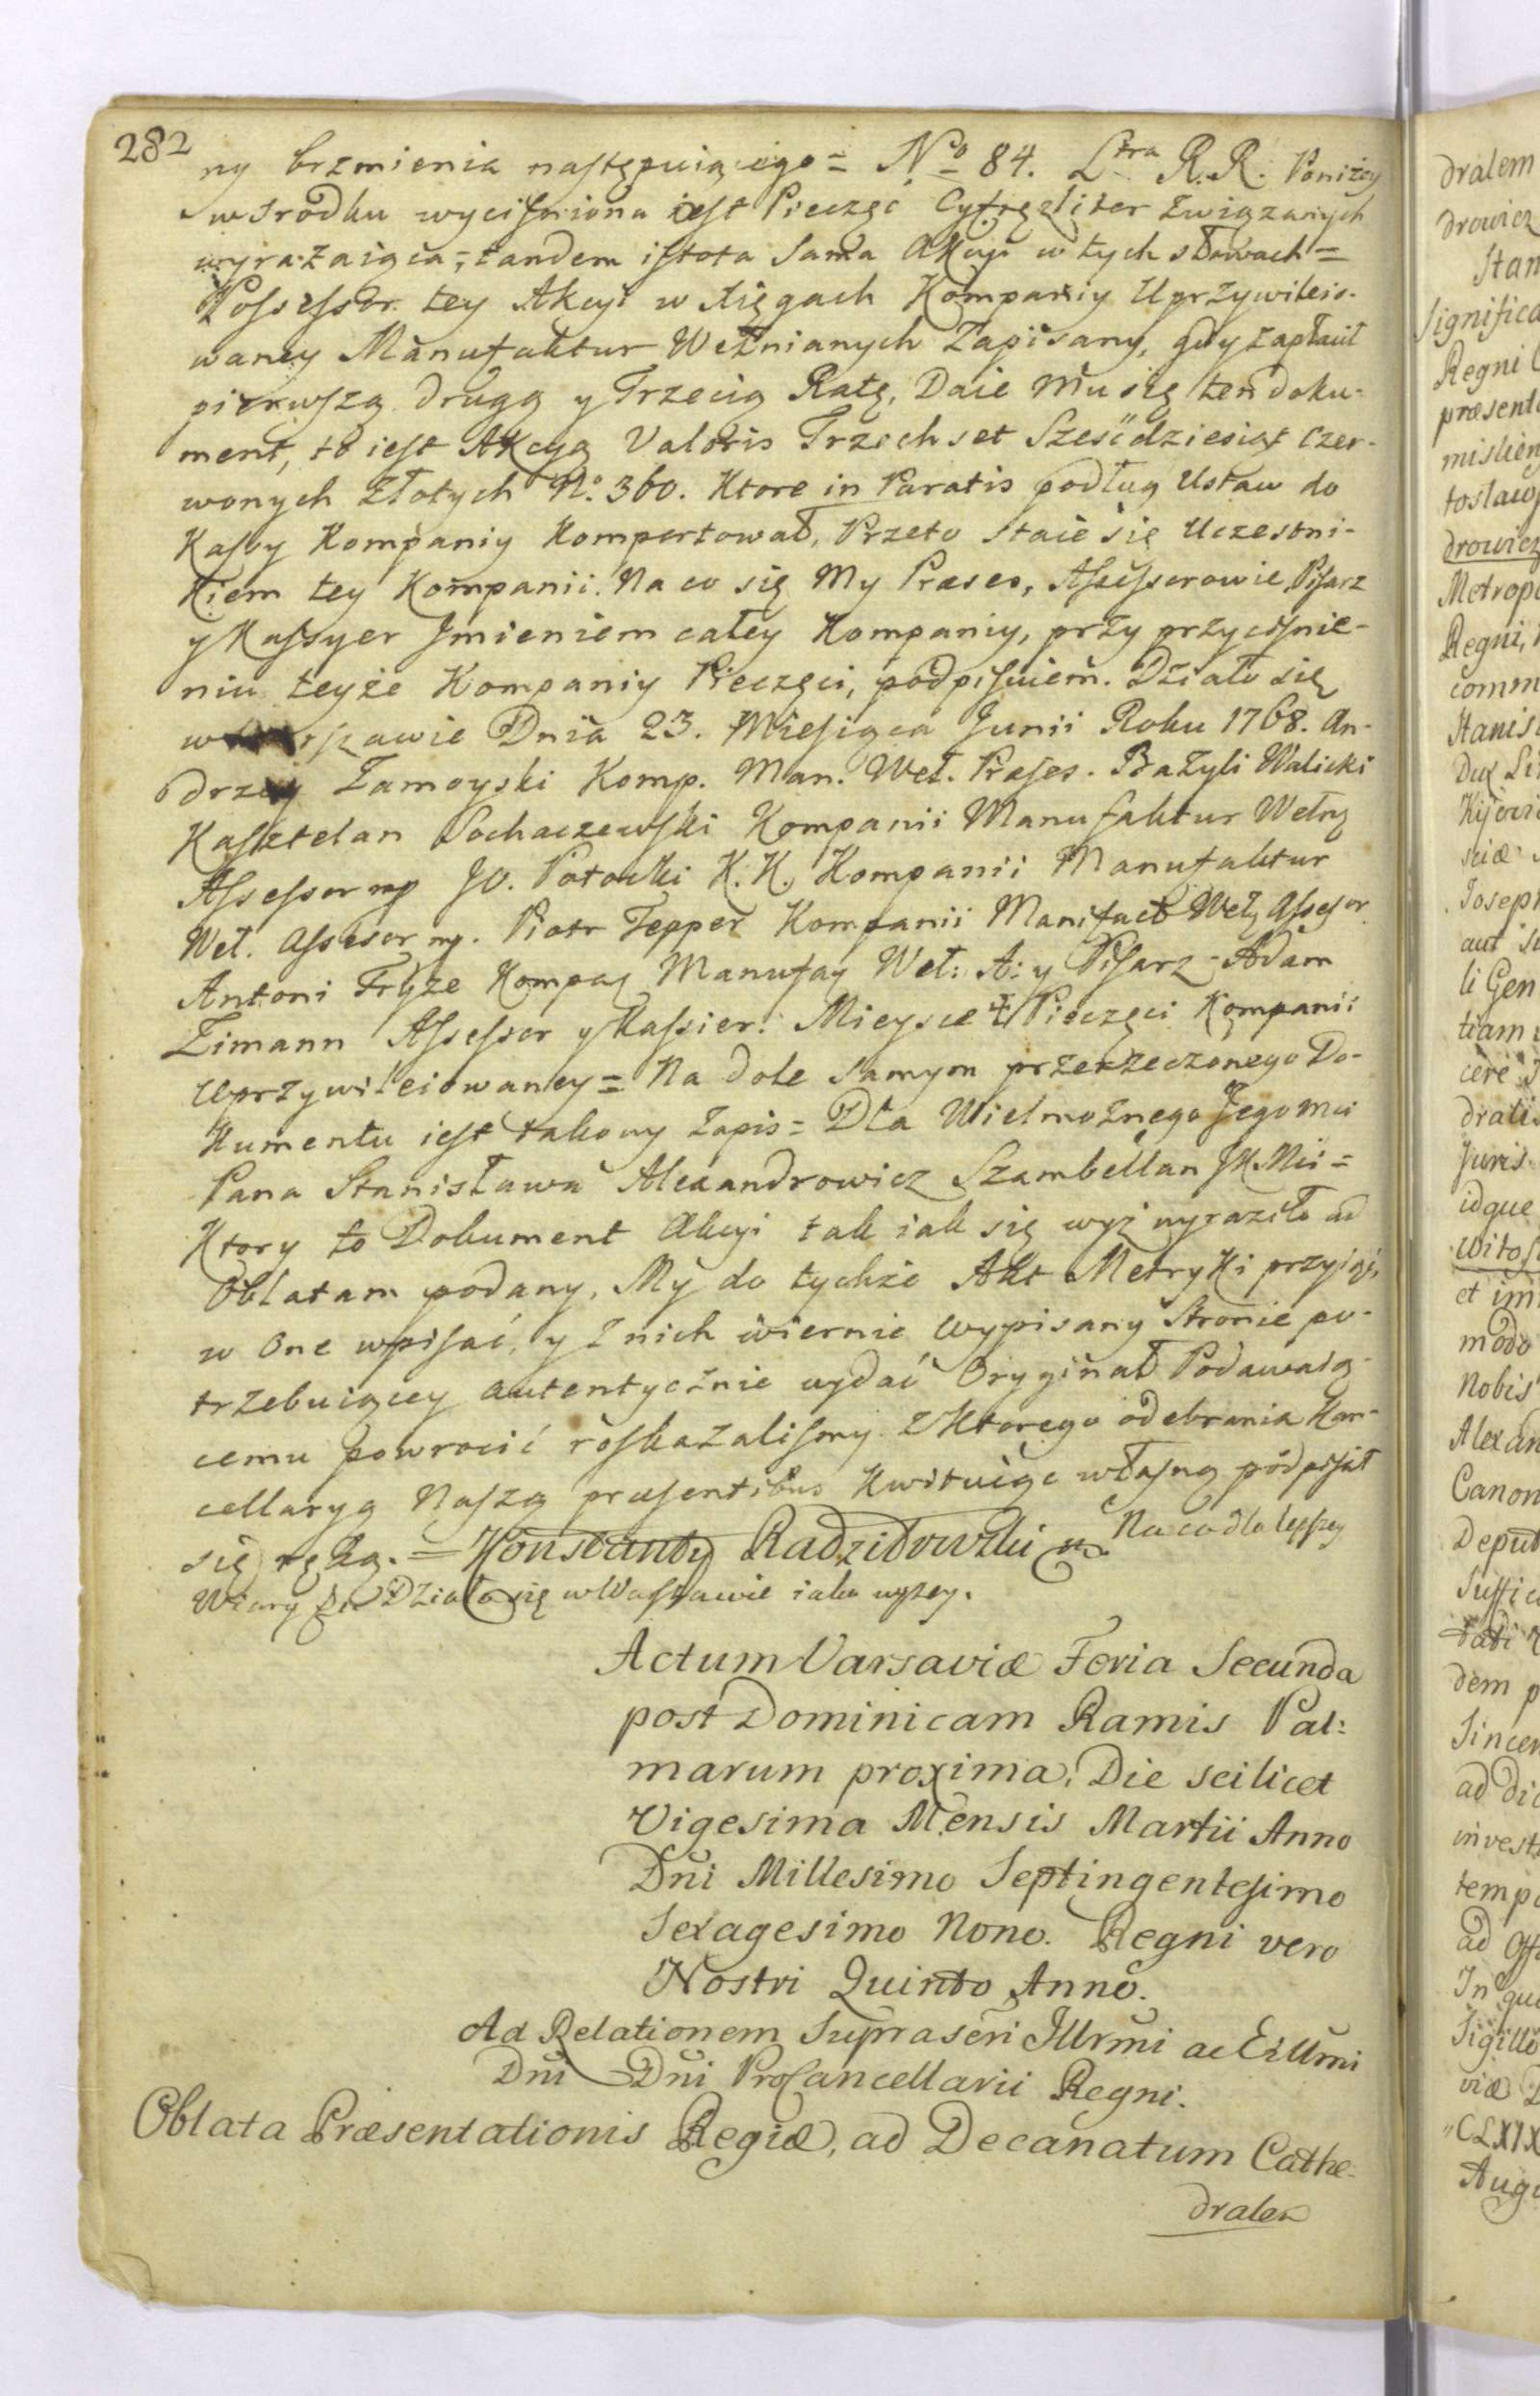 282
ny brzmienia następuiącego = No 84. Ltra R.R. Poniżey
w srodku wycisniona iest Pieczęć Cyfrę liter związanych
wyrażaiąca, tandem istota Sama Akcyi w tych słowach =
Possessor tey Akcyi w Xięgach Kompaniy Uprzywileio-
waney Manufaktur Wełnianych Zapisany, gdy zapłacił
pierwszą drugą y Trzecią Ratę, Daie Mu się ten doku-
ment, to iest Akcyą Valoris Trzechset Sześćdziesiąt Czer-
wonych Złotych No. 360. Ktore in Paratis podług Ustaw do
Kassy Kompaniy Komportował, Przeto staie się Uczestni-
kiem tey Kompanii. Na co się My Præses, Assessorowie, Pisarz
y Kassyer Jmieniem całey Kompaniy, przy przycisnie-
niu teyże Kompaniy Pieczęci, podpisuiem. Działo się
w Warszawie Dnia 23. Miesiąca Junii Roku 1768. An-
drzey Zamoyski Komp. Man. Weł. Præses. Bazyli Walicki
Kasztelan Sochaczewski Kompanii Manufaktur Wełny
Assessor mp Jo. Potocki K. K. Kompanii Manufaktur
Weł. Assessor mp. Piotr Tepper Kompanii Manifact Weł, Assessor
Antoni Fryze Kompan Manufay Weł: A: y Pisarz - Adam
Zimann Assessor y Kassier. Mieysce Pieczęci Kompanii
Uprzywileiowaney = Na dole samym przerzeczonego Do-
kumentu iest takowy Zapis = Dla Wielmożnego Jegomci
Pana Stanisława Alexandrowicz Szambellan JKMci =
Ktory to Dokument Akcyi tak iak się wyż wyraziło ad
Oblatam podany, My do tychże Akt Metryki przyiąć,
w One wpisać, y z nich wiernie Wypisany Stronie po-
trzebuiącey autentycznie wydać Oryginał Podawaią-
cemu powrocić roskazalismy. Z Ktorego odebrania Kan-
cellaryą Naszą præsentibus Kwituiąc własną podpisał
się ręką. = Konstanty Radziłowski mp Na co dla lepszey
Wiary Działo się w Warszawie iako wyzey.
Actum Varsaviæ Feria Secunda
post Dominicam Ramis Pal:
marum proxima, Die scilicet
Vigesima Mensis Martii Anno
Dni Millesimo Septingentesimo
Sexagesimo Nono. Regni vero
Nostri Quinto Anno.
Ad Relationem Suprascri Illrmi ac Exllmi
Dni Dni ProCancellarii Regni.
Oblata Præsentationis Regiæ, ad Decanatum Cathe-
dralem